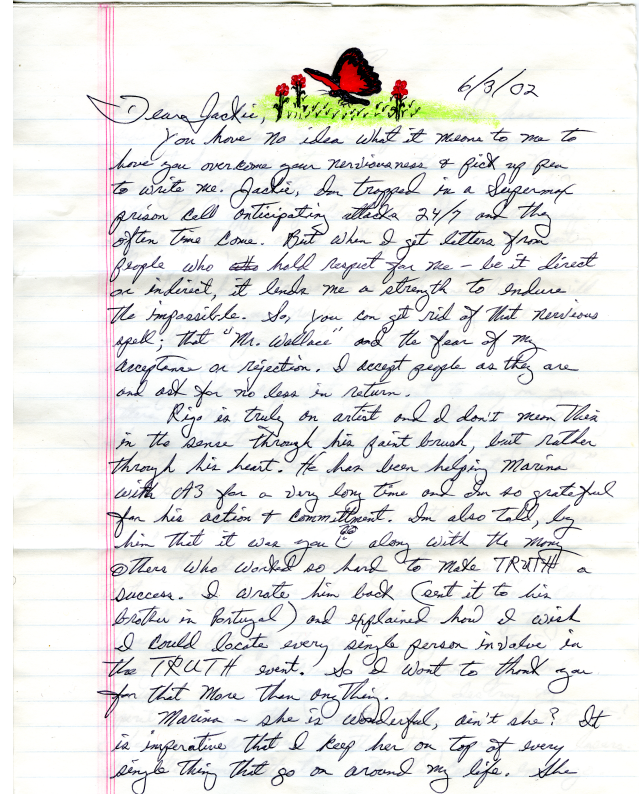 6/3/02
Dear Jackie,
You have no idea what it means to me to
have you overcome your nerviousness & pick up pen
to write me. Jackie, I'm trapped in a Supermax
prison cell anticipating attacks 24/7 and they
often time come. But when I get letters from
people who hold respect for me – be it direct
or indirect, it lends me a strength to endure
the impossible. So, you can get rid of that nervious
spell; that "Mr. Wallace" and the fear of my
acceptance or rejection. I accept people as they are
and ask for no less in return.
Rigo is truly an artist and I don't mean this
in the sense through his paint brush, but rather
through his heart. He has been helping Marina
with A3 for a very long time and I'm so grateful
for his action & committment. I'm also told, by
him that it was you along with the many
others who worked so hard to make TRUTH a
success. I wrote him back (sent it to his
brother in Portugal) and explained how I wish
I could locate every single person involve in
the TRUTH event. So I want to thank you
for that more than anything.
Marina – she is wonderful, ain't she? It
is imperative that I keep her on top of every
single thing that go on around my life. She